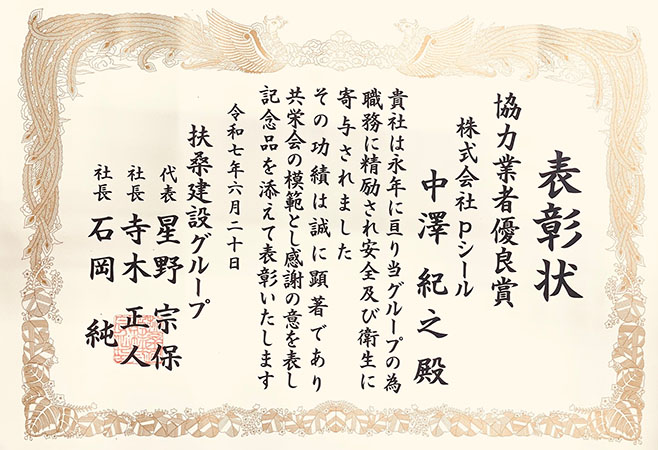 表彰状
協力業者優良賞
株式会社 pシール
中澤 紀之 殿
貴社は永年に亘り当グループの為
職務に精励され安全及び衛生に
寄与されました
その功績は誠に顕著であり
共栄会の模範とし感謝の意を表し
記念品を添えて表彰いたします
令和七年六月二十日
扶桑建設グループ
代表 星野 宗保
社長 寺木 正人
社長 石岡 純